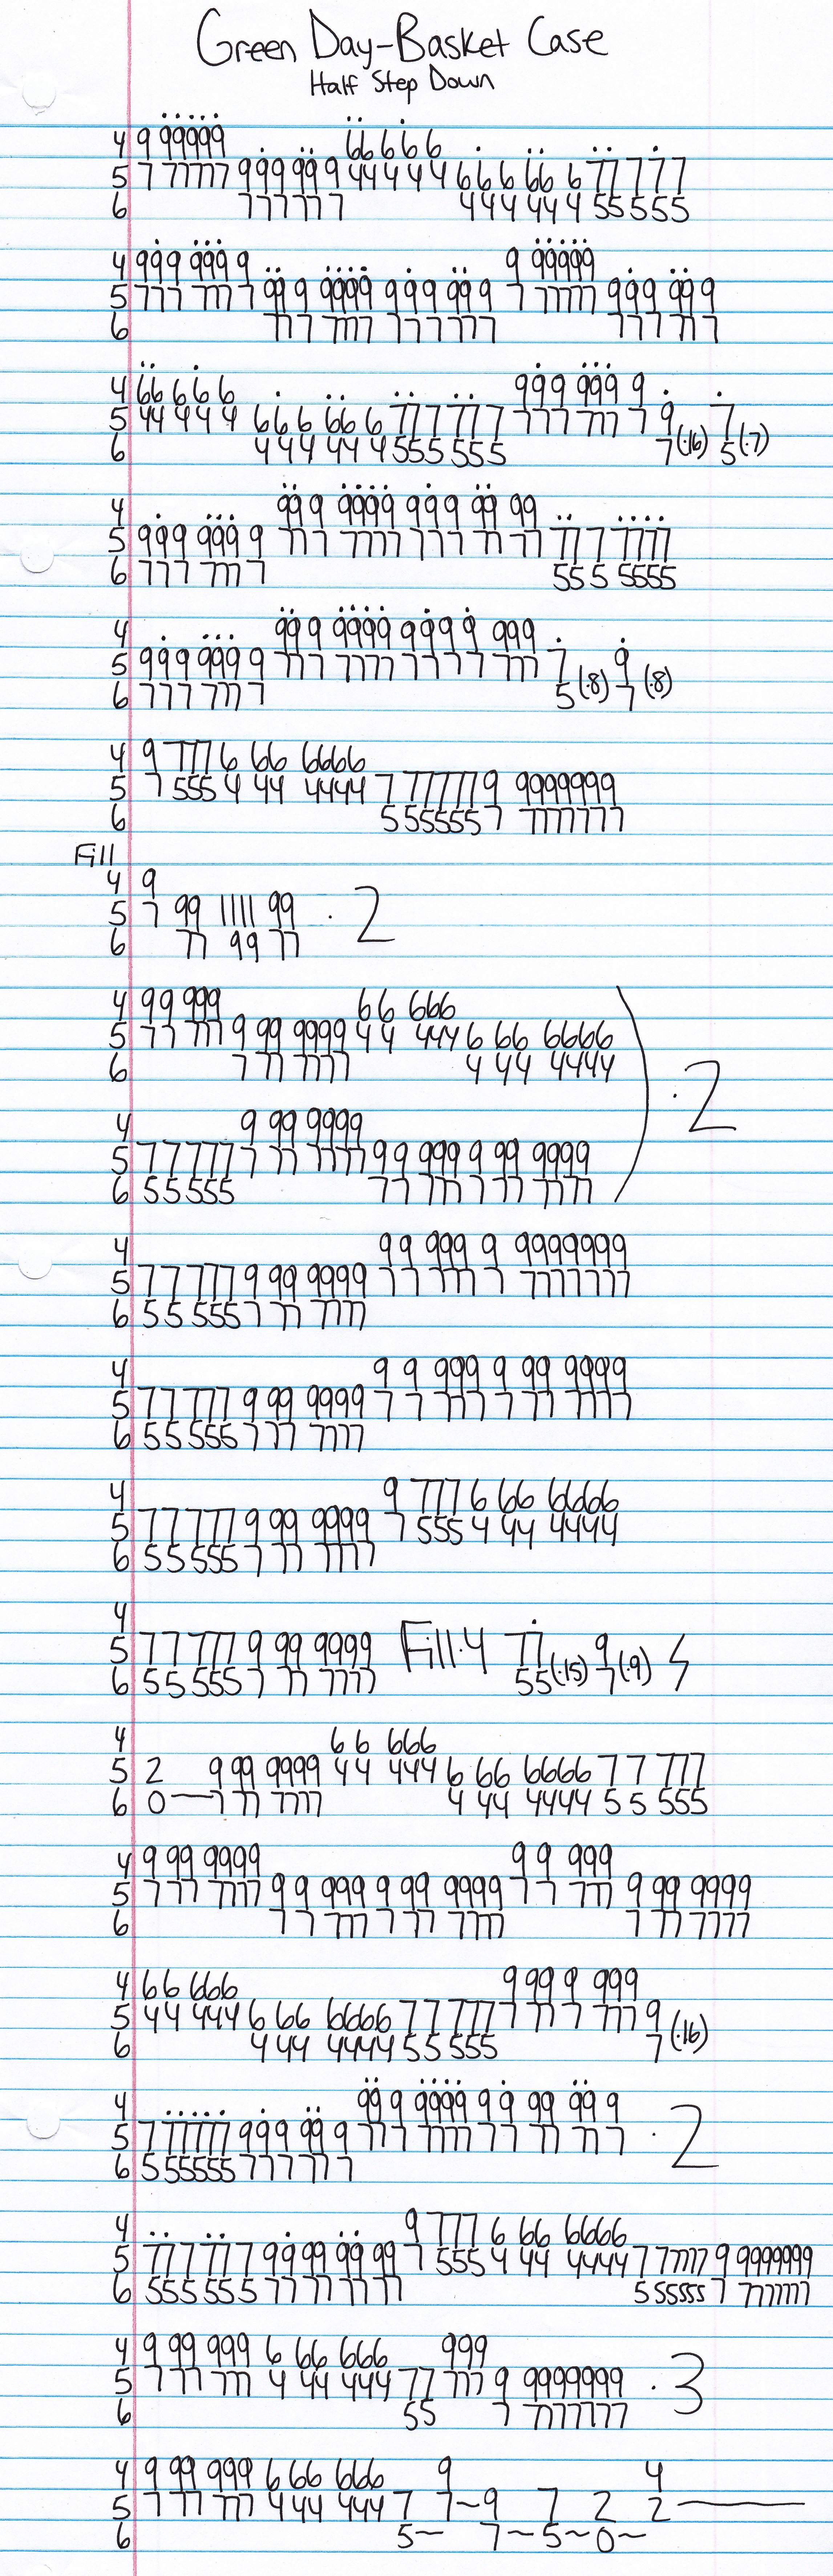 Green Day-Basket Case
Half Step Down
4 9 99999 66 6 6 6
5 7 77777 9 9 9 99 9 44 4 4 4 6 6 6 66 6 77 7 7 7
6 7 7 7 77 7 4 4 4 44 4 55 5 5 5
4 999 999 9 9 99999
5 777 777 7 99 9 9999 999 999 9 7 77777 999 99 9
6 77 7 7777 777 777 777 77 7
4 66 6 6 6 999 999 9
5 44 4 4 4 6 6 6 66 6 777 777 7 777 777 7 9 7
6 4 4 4 44 4 555 555 7(·16) 5(·7)
4 99 9 9999 999 99 99
5 999 999 9 77 7 7777 777 77 77 77 7 7777
6 777 777 7 55 5 5555
4 99 9 9999 9999 999
5 999 999 9 77 7 7777 7777 777 7 9
6 777 777 7 5(·8) 7(·8)
4 9 777 6 66 6666
5 7 555 4 44 4444 7 77777 9 9999999
6 5 55555 7 7777777
Fill
4 9
5 7 99 1111 99 · 2
6 77 99 77
4 99 999 66 666
5 77 777 9 99 9999 44 444 6 66 6666
6 7 77 7777 4 44 4444
· 2
4 9 99 9999
5 77 777 7 77 7777 99 999 9 99 9999
6 55 555 77 777 7 77 7777
4 99 999 9 9999999
5 77 777 9 99 9999 77 777 7 7777777
6 55 555 7 77 7777
4 9 9 999 9 99 9999
5 77 777 9 99 9999 7 7 777 7 77 7777
6 55 555 7 77 7777
4 9 777 6 66 6666
5 77 777 9 99 9999 7 555 4 44 4444
6 55 555 7 77 7777
4
5 77 777 9 99 9999 Fill·4 77 9
6 55 555 7 77 7777 55(·15) 7(·9)
4 66 666
5 2 9 99 9999 44 444 6 66 6666 77 777
6 0—7 77 7777 4 44 4444 55 555
4 9 99 9999 99 999
5 7 77 7777 99 999 9 99 9999 77 777 9 99 9999
6 77 777 7 77 7777 7 77 7777
4 66 666 9 99 9 999
5 44 444 6 66 6666 77 777 7 77 7 777 9
6 4 44 4444 55 555 7(·16)
4 99 9 9999 99 99 99 9
5 7 77777 999 99 9 77 7 7777 77 77 77 7 · 2
6 5 55555 777 77 7
4 9 777 6 66 6666
5 777 777 99 99 99 99 7 555 4 44 4444 7 77777 9 9999999
6 555 555 77 77 77 77 5 55555 7 7777777
4 9 99 999 6 66 666 999
5 7 77 777 4 44 444 77 777 9 9999999 · 3
6 55 7 7777777
4 9 99 999 6 66 666 9 4
5 7 77 777 4 44 444 7 7~9 7 2 2——
6 5~ 7~5~0~